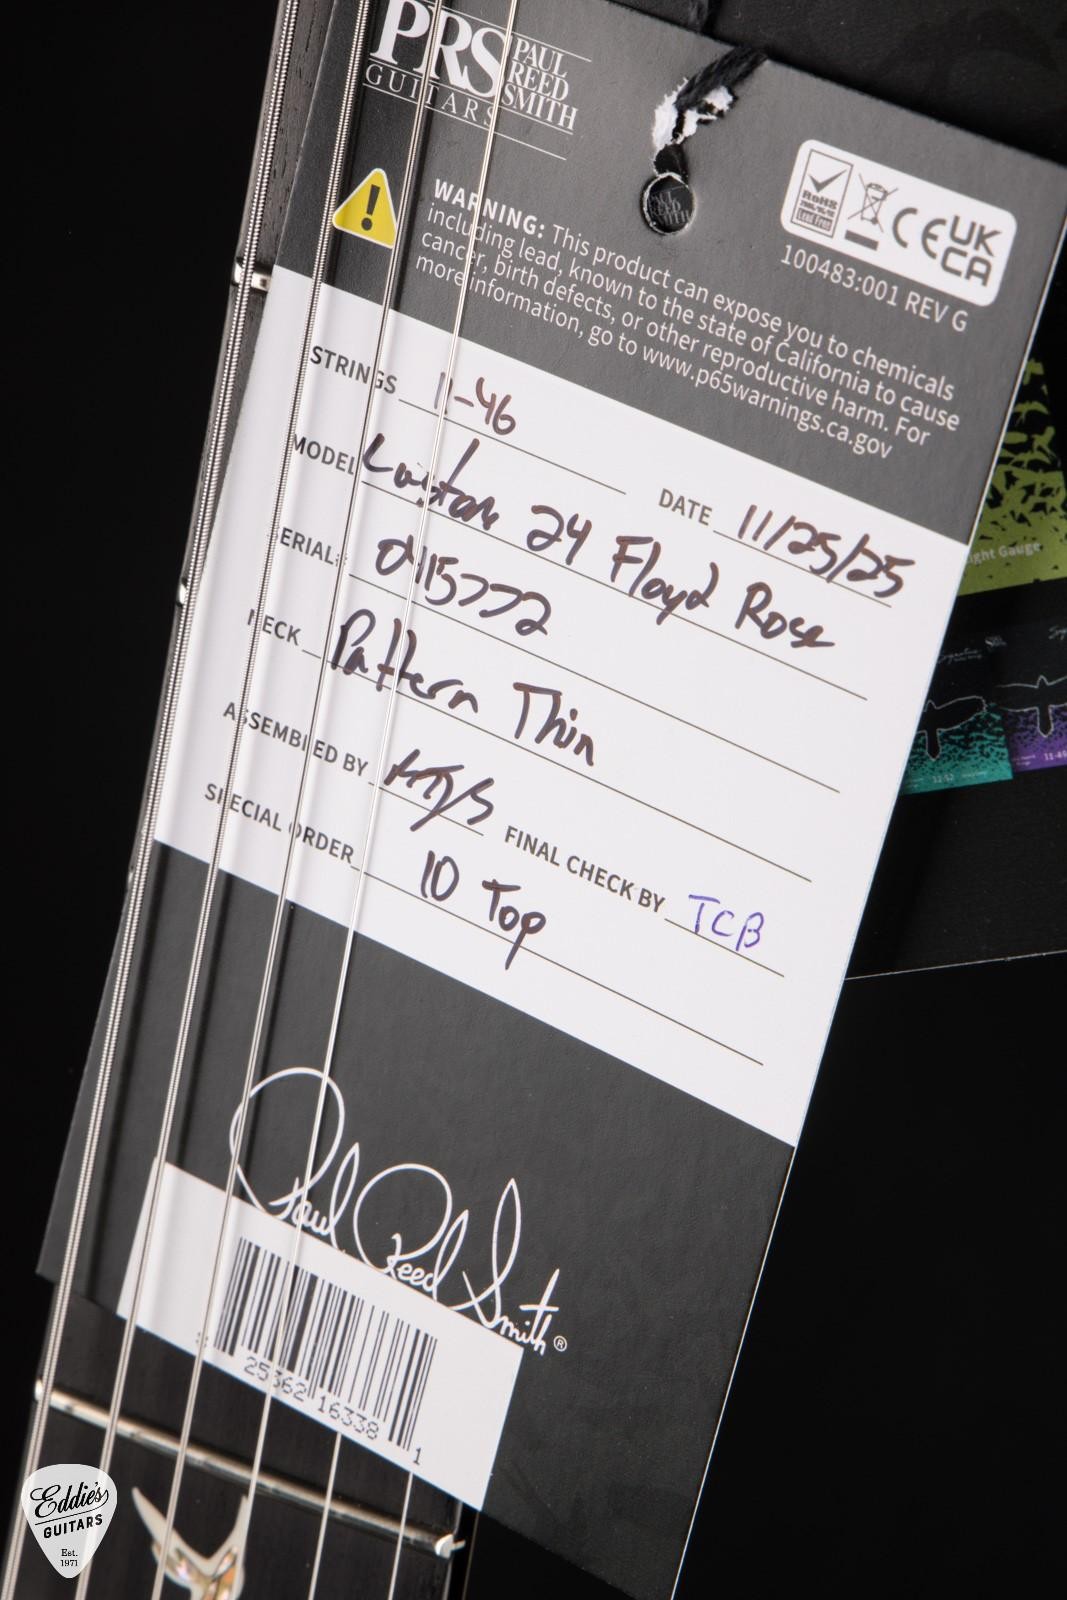 PRS PAUL REED SMITH
GUITARS
RoHS
CE UK CA
100483:001 REV G
WARNING: This product can expose you to chemicals
including lead, known to the state of California to cause
cancer, birth defects, or other reproductive harm. For
more information, go to www.p65warnings.ca.gov
STRINGS 11-46
DATE 11/25/25
MODEL Custom 24 Floyd Rose
SERIAL# 0415772
NECK Pattern Thin
ASSEMBLED BY
FINAL CHECK BY TCB
SPECIAL ORDER 10 Top
Paul Reed Smith ®
25362 16338 1
ight Gauge
Eddie's
GUITARS
Est.
1971